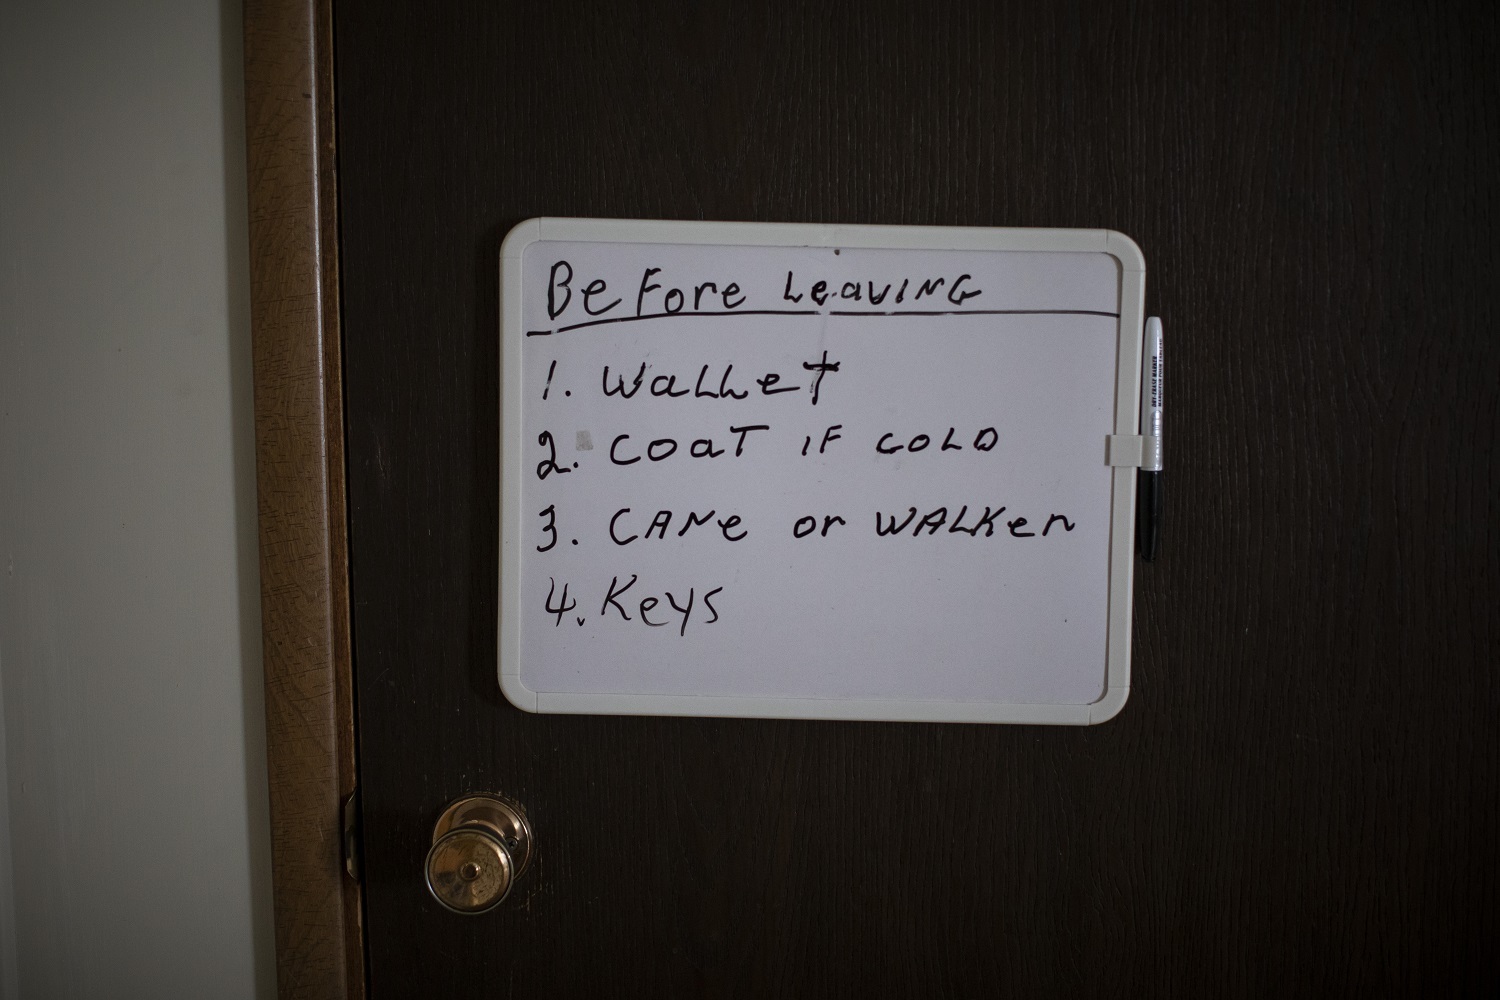 Before Leaving
1. Wallet
2. Coat if cold
3. Cane or walker
4. Keys
DRY ERASE MARKER